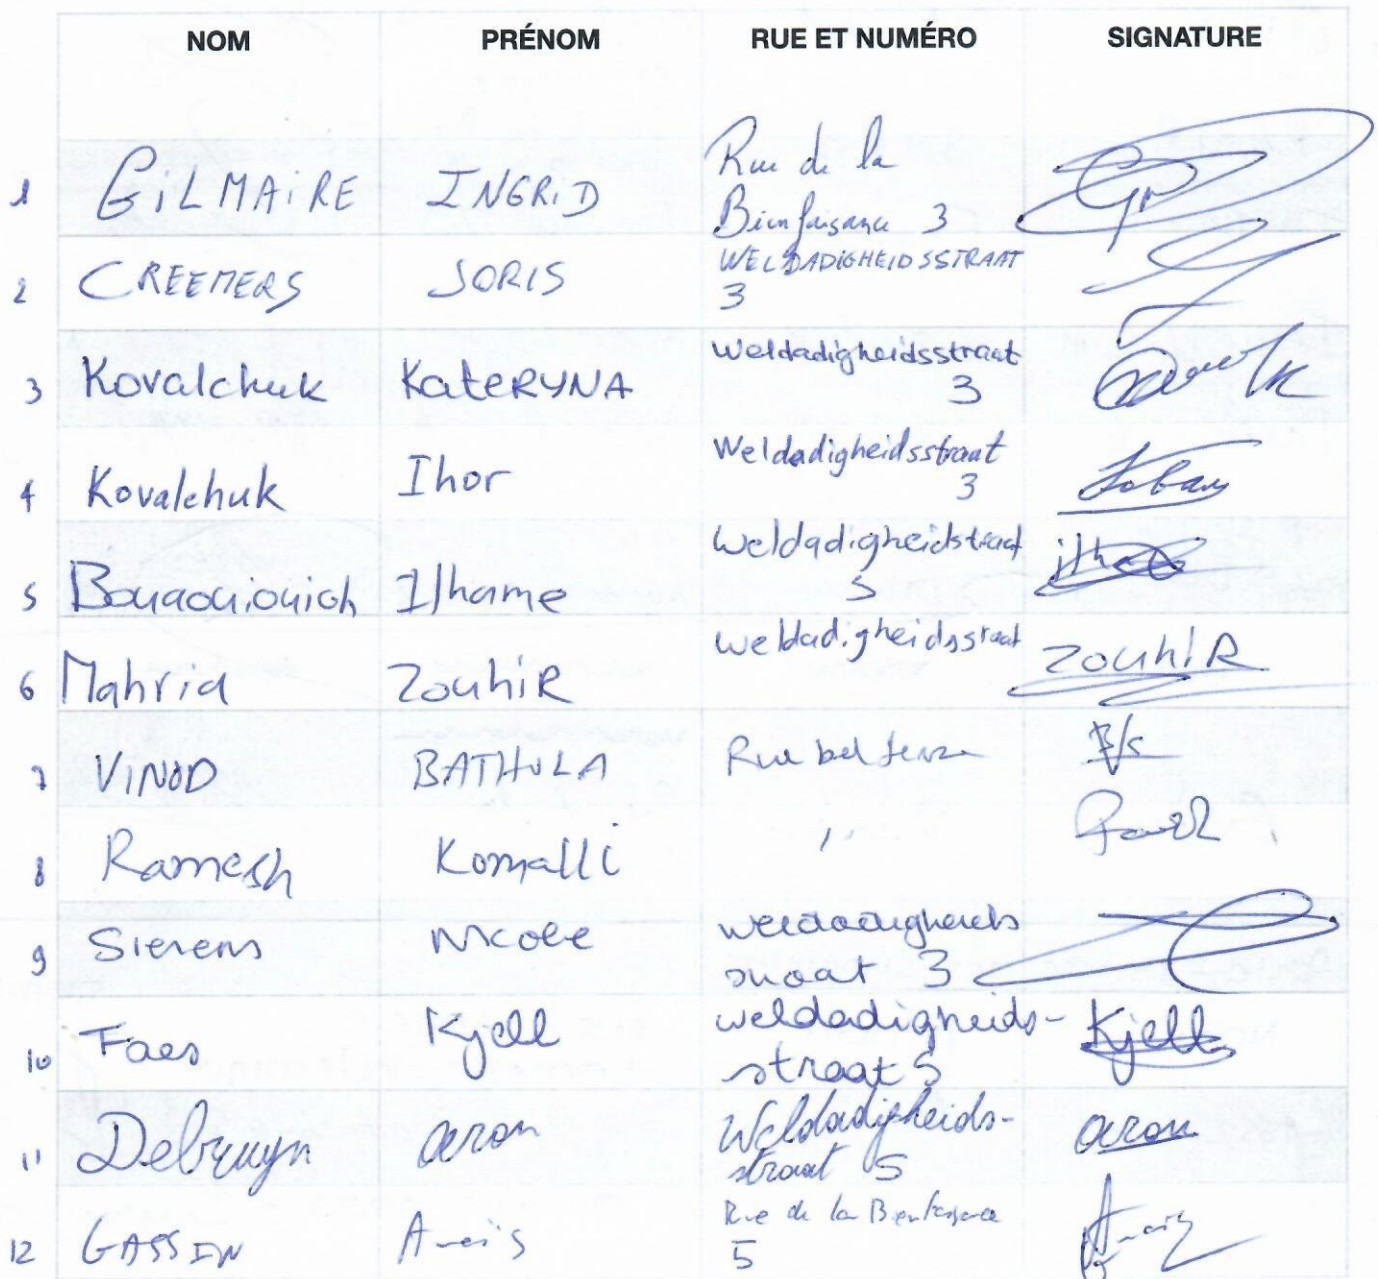 NOM PRÉNOM RUE ET NUMÉRO SIGNATURE
1 GILMAIRE INGRID Rue de la
Bienfaisance 3
2 CREEMERS JORIS WELDADIGHEIDSSTRAAT
3
3 Kovalchuk KateRYNA Weldadigheidsstraat
3
4 Kovalchuk Ihor Weldadigheidsstraat
3
5 Ilhame Weldadigheidstraat
6 Mahria ZouhiR Weldadigheidsstraat ZOUHIR
7 VINOD BATHULA Rue
8 Ramesh Komalli
9 Sierens Nicole
3
10 Faes Kjell weldadigheids-
straat 5 Kjell
11 Debruyn aron Weldadigheids-
straat 5 aron
12 GASSIN Anaïs Rue de la Bienfaisance
5 Anaïs